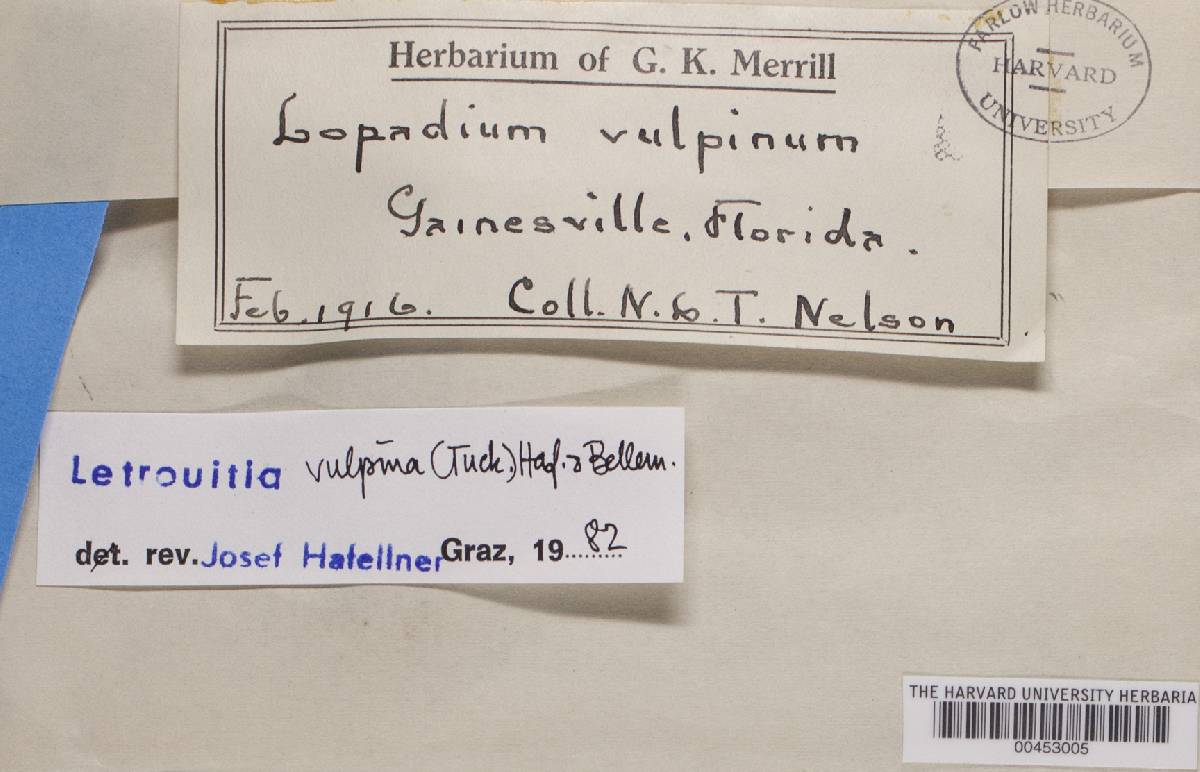 Herbarium of G. K. Merrill
FARLOW HERBARIUM
HARVARD
UNIVERSITY
Lopadium vulpinum
Gainesville, Florida.
Feb. 1916. Coll. N. & T. Nelson
Letrouitia vulpina (Tuck.) Haf. & Bellem.
det. rev. Josef Hafellner Graz, 19 82
THE HARVARD UNIVERSITY HERBARIA
00453005